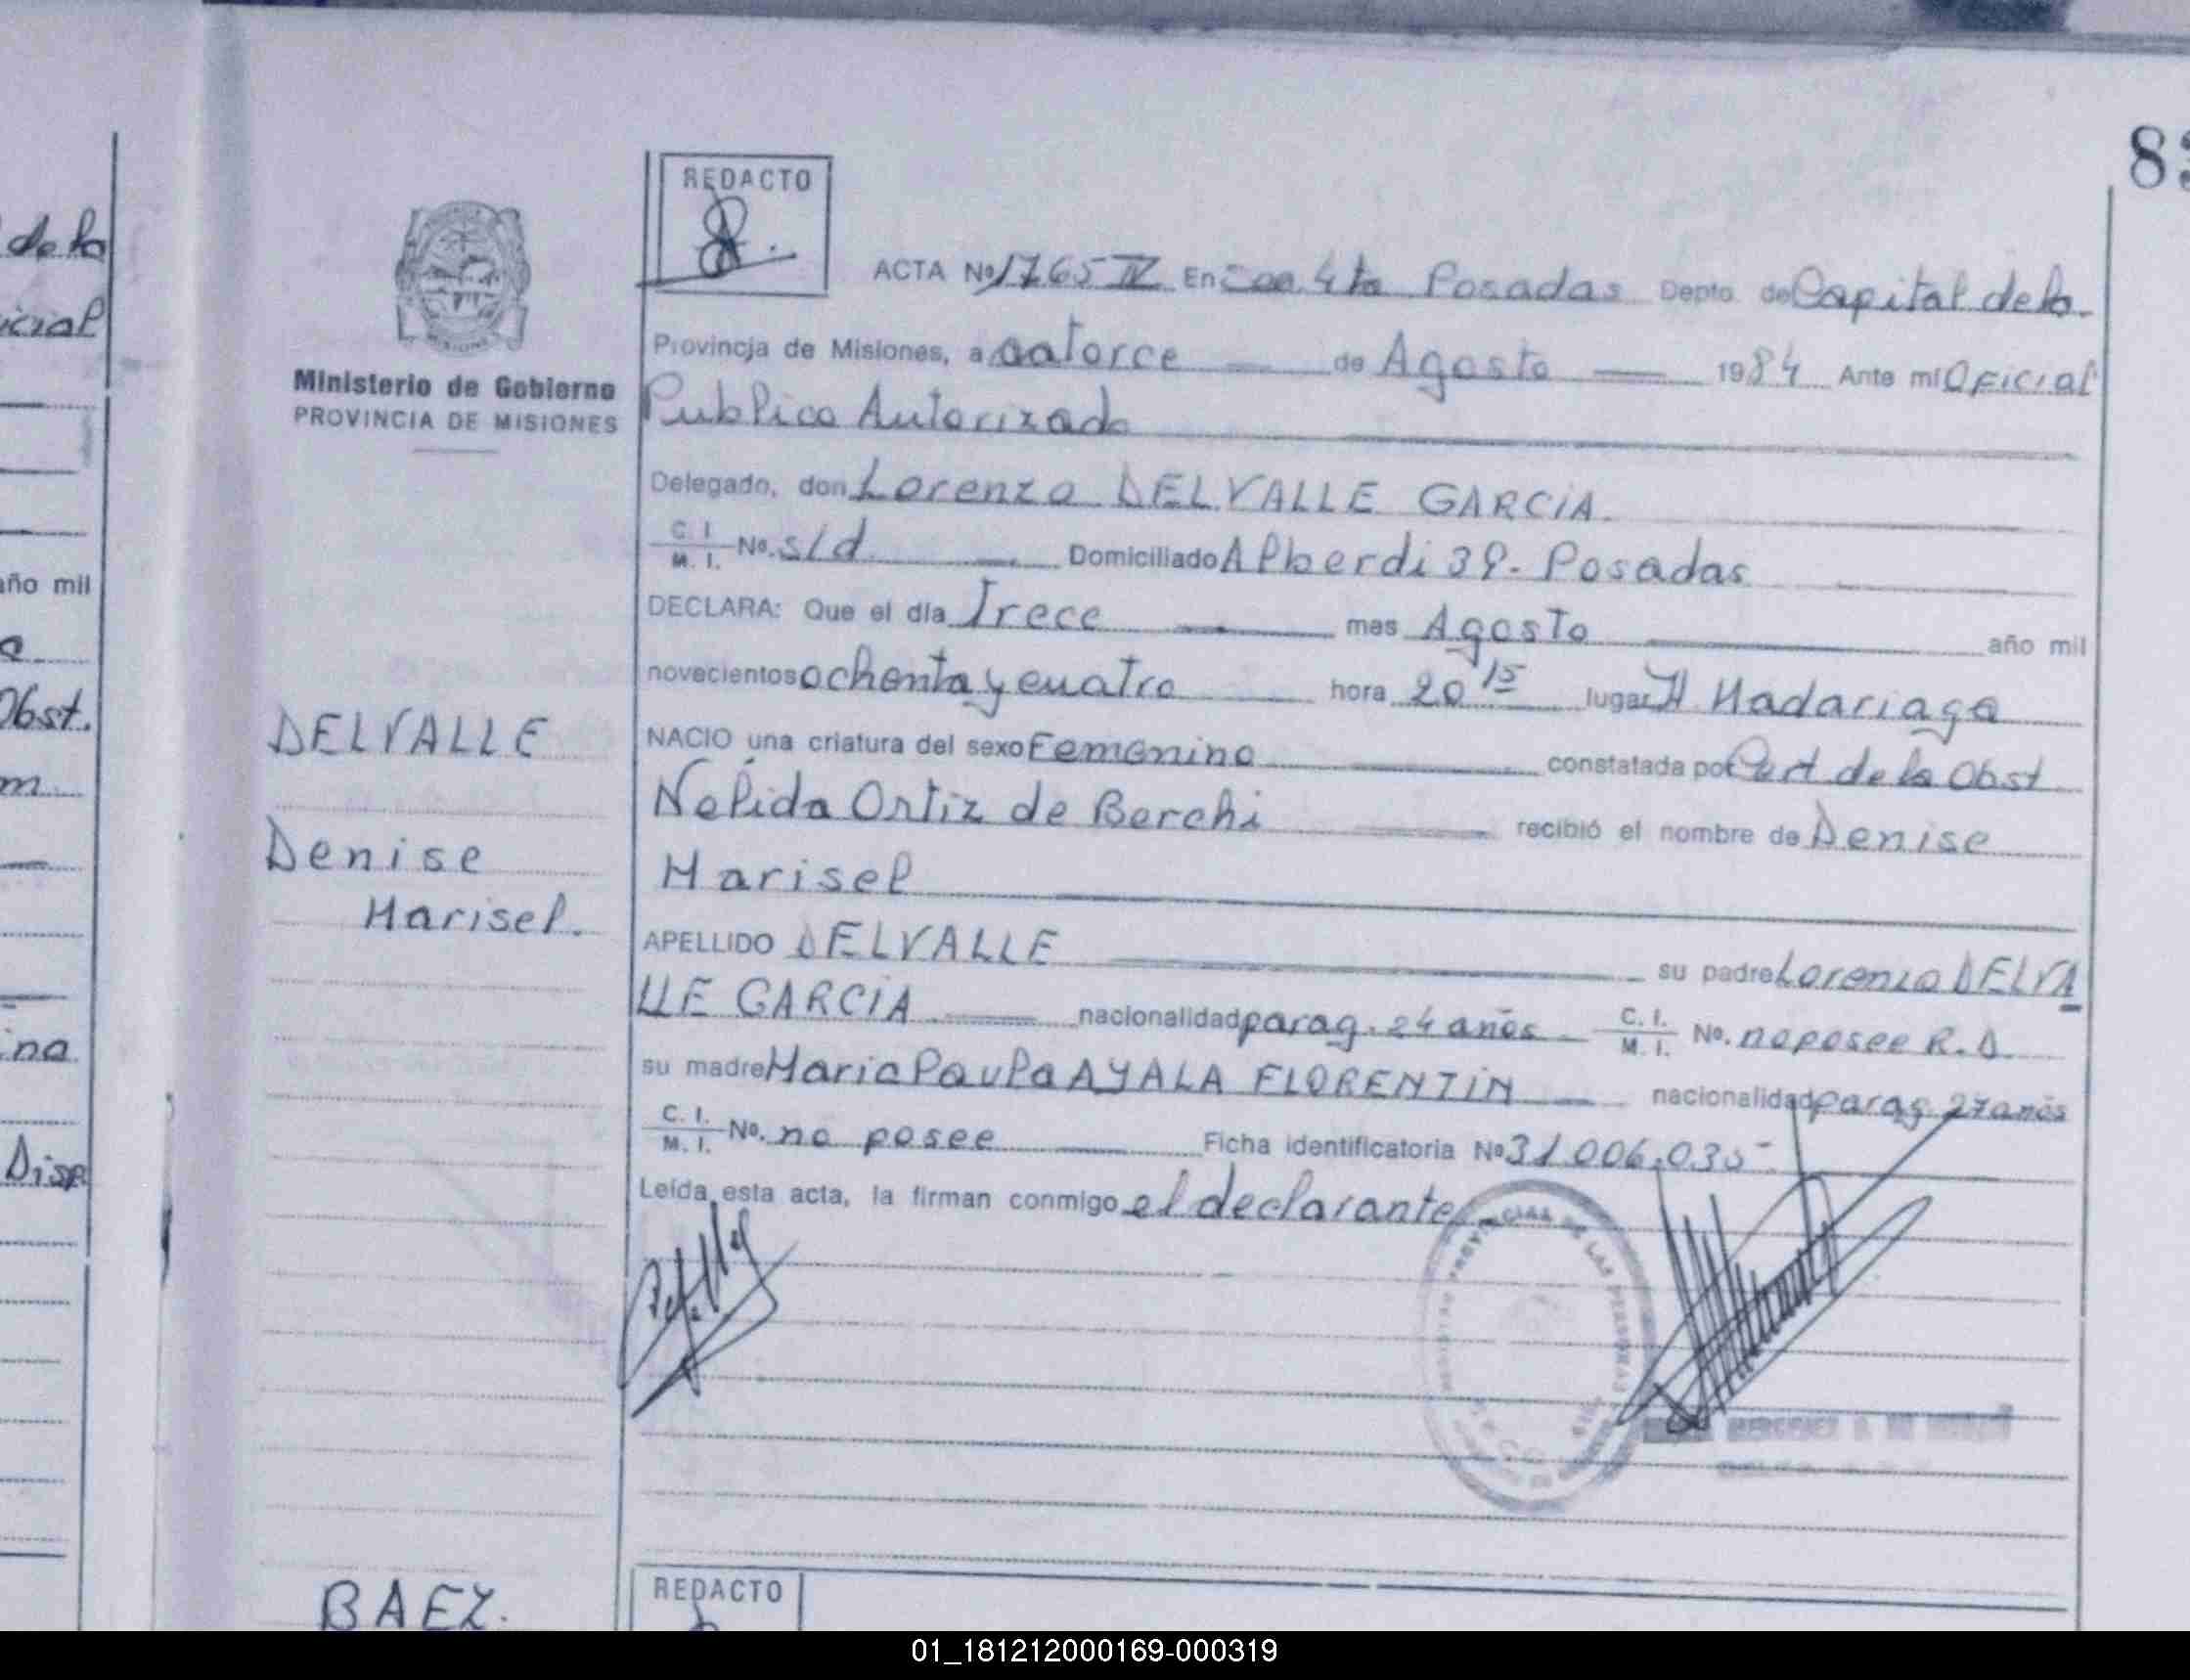 83
de la
icial
año mil
a
Obst.
m
ina
Disp
REDACTO
Ministerio de Gobierno
PROVINCIA DE MISIONES
DELVALLE
Denise
Marisel.
ACTA Nº 1765 IV En Secc. 4ta Posadas Depto. de Capital de la
Provincia de Misiones, a catorce — de Agosto — 1984 Ante mi Oficial
Publico Autorizado
Delegado, don Lorenzo DELVALLE GARCIA.
C. I. / M. I. No. s/d — Domiciliado Alberdi 39. Posadas
DECLARA: Que el día Trece — mes Agosto — año mil
novecientos ochenta y cuatro hora 20 15 lugar H Madariaga
NACIO una criatura del sexo Femenino — constatada por Cert de la Obst
Nelida Ortiz de Berchi — recibió el nombre de Denise
Marisel
APELLIDO DELVALLE — su padre Lorenzo DELVA
LLE GARCIA — nacionalidad parag. 24 años — C. I. / M. I. No. no posee R.D.
su madre Maria Paula AYALA FLORENTIN — nacionalidad parag 27 años
C. I. / M. I. No. no posee — Ficha identificatoria Nº 31.006.035-
Leída esta acta, la firman conmigo el declarante
BAEZ.
REDACTO
01_181212000169-000319